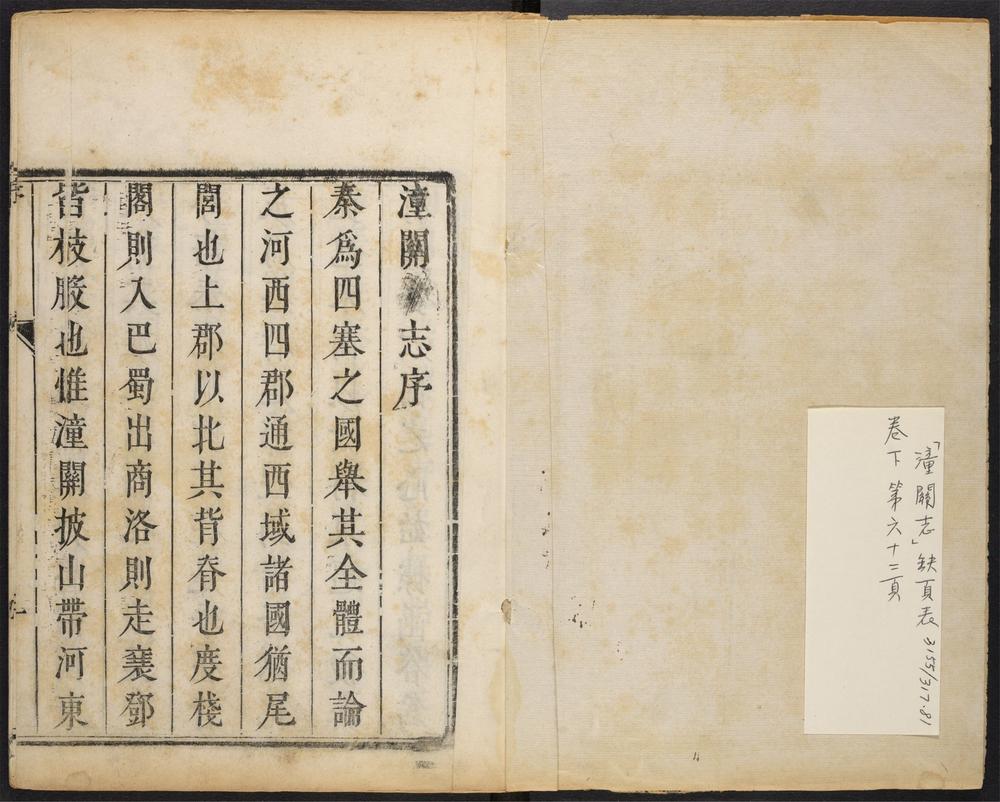 「潼關志」缺頁表 3155/317.81
卷下 第六十二頁
潼關志序
秦爲四塞之國舉其全體而論
之河西四郡通西域諸國猶尾
閭也上郡以北其背脊也度棧
閣則入巴蜀出商洛則走襄鄧
皆枝股也惟潼關披山帶河東